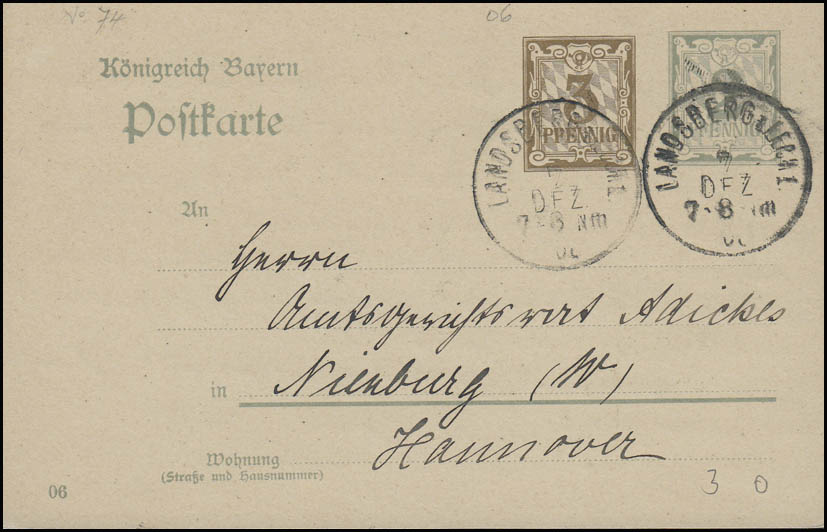 No 74
06
Königreich Bayern
Postkarte
3
PFENNIG
2
PFENNIG
LANDSBERG a. LECH 1.
7
DEZ
7-8 Nm
06
LANDSBERG a. LECH 1.
7
DEZ
7-8 Nm
06
An
Herrn
Amtsgerichtsrat Adickes
in Nienburg (W)
Hannover
Wohnung
(Straße und Hausnummer)
06
3 0